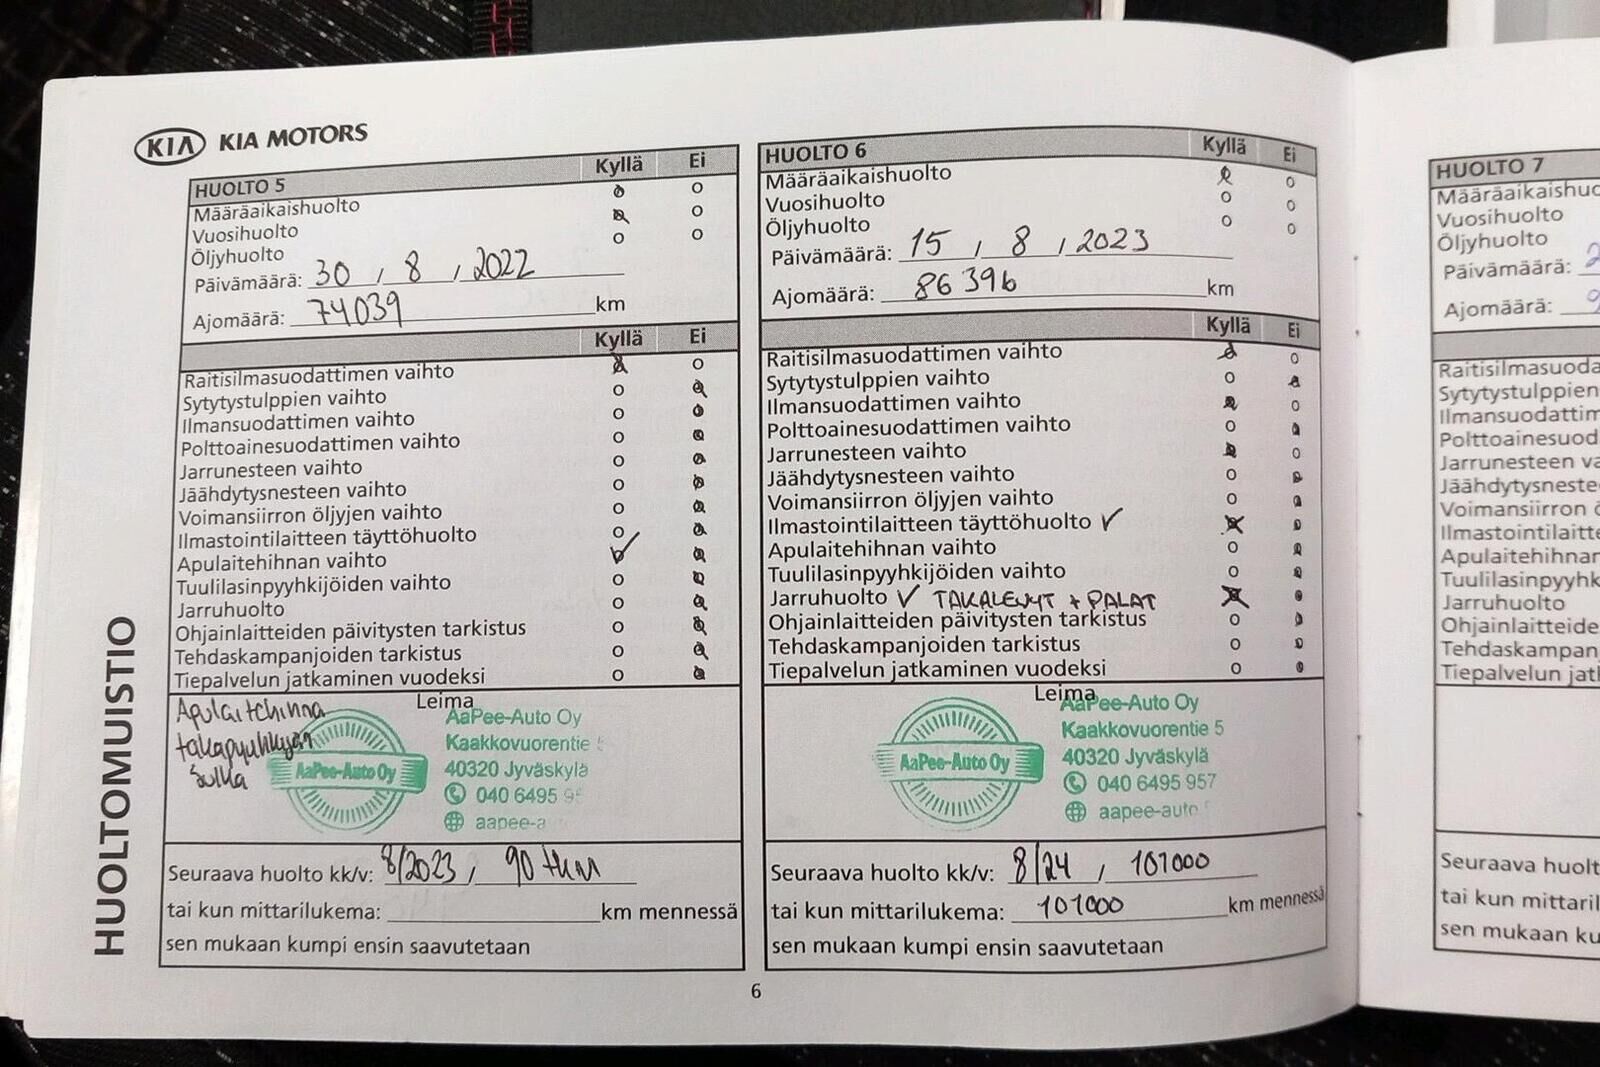 KIA KIA MOTORS
HUOLTO 5 Kyllä Ei
Määräaikaishuolto
Vuosihuolto
Öljyhuolto
Päivämäärä: 30 , 8 , 2022
Ajomäärä: 74039 km
Kyllä Ei
Raitisilmasuodattimen vaihto
Sytytystulppien vaihto
Ilmansuodattimen vaihto
Polttoainesuodattimen vaihto
Jarrunesteen vaihto
Jäähdytysnesteen vaihto
Voimansiirron öljyjen vaihto
Ilmastointilaitteen täyttöhuolto
Apulaitehihnan vaihto
Tuulilasinpyyhkijöiden vaihto
Jarruhuolto
Ohjainlaitteiden päivitysten tarkistus
Tehdaskampanjoiden tarkistus
Tiepalvelun jatkaminen vuodeksi
Leima
Apulaitehihna
takapyyhkyän
sulka
AaPee-Auto Oy
AaPee-Auto Oy
Kaakkovuorentie 5
40320 Jyväskylä
040 6495 95
aapee-a
Seuraava huolto kk/v: 8/2023 , 90 tkm
tai kun mittarilukema: km mennessä
sen mukaan kumpi ensin saavutetaan
HUOLTO 6 Kyllä Ei
Määräaikaishuolto
Vuosihuolto
Öljyhuolto
Päivämäärä: 15 , 8 , 2023
Ajomäärä: 86 396 km
Kyllä Ei
Raitisilmasuodattimen vaihto
Sytytystulppien vaihto
Ilmansuodattimen vaihto
Polttoainesuodattimen vaihto
Jarrunesteen vaihto
Jäähdytysnesteen vaihto
Voimansiirron öljyjen vaihto
Ilmastointilaitteen täyttöhuolto ✓
Apulaitehihnan vaihto
Tuulilasinpyyhkijöiden vaihto
Jarruhuolto ✓ TAKALEVYT + PALAT
Ohjainlaitteiden päivitysten tarkistus
Tehdaskampanjoiden tarkistus
Tiepalvelun jatkaminen vuodeksi
Leima
AaPee-Auto Oy
AaPee-Auto Oy
Kaakkovuorentie 5
40320 Jyväskylä
040 6495 957
aapee-auto
Seuraava huolto kk/v: 8/24 , 101000
tai kun mittarilukema: 101000 km mennessä
sen mukaan kumpi ensin saavutetaan
HUOLTOMUISTIO
6
HUOLTO 7
Määräaikaishuo
Vuosihuolto
Öljyhuolto
Päivämäärä: 2
Ajomäärä: 9
Raitisilmasuoda
Sytytystulppien
Ilmansuodattim
Polttoainesuod
Jarrunesteen va
Jäähdytysneste
Voimansiirron ö
Ilmastointilaitte
Apulaitehihnan
Tuulilasinpyyhk
Jarruhuolto
Ohjainlaitteide
Tehdaskampan
Tiepalvelun jatk
Seuraava huolt
tai kun mittaril
sen mukaan ku